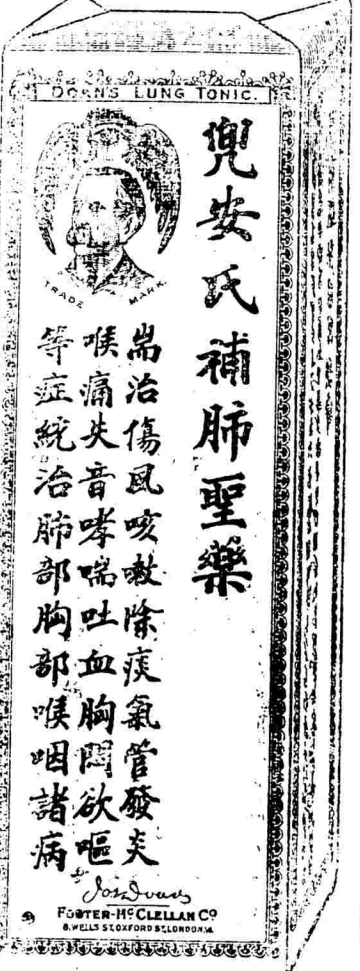 DOAN'S LUNG TONIC.
TRADE MARK.
兜安氏補肺聖藥
耑治傷風咳嗽除痰氣管發炎
喉痛失音哮喘吐血胸悶欲嘔
等症統治肺部胸部喉咽諸病
FOSTER-McCLELLAN Co
8, WELLS ST. OXFORD ST. LONDON, W.